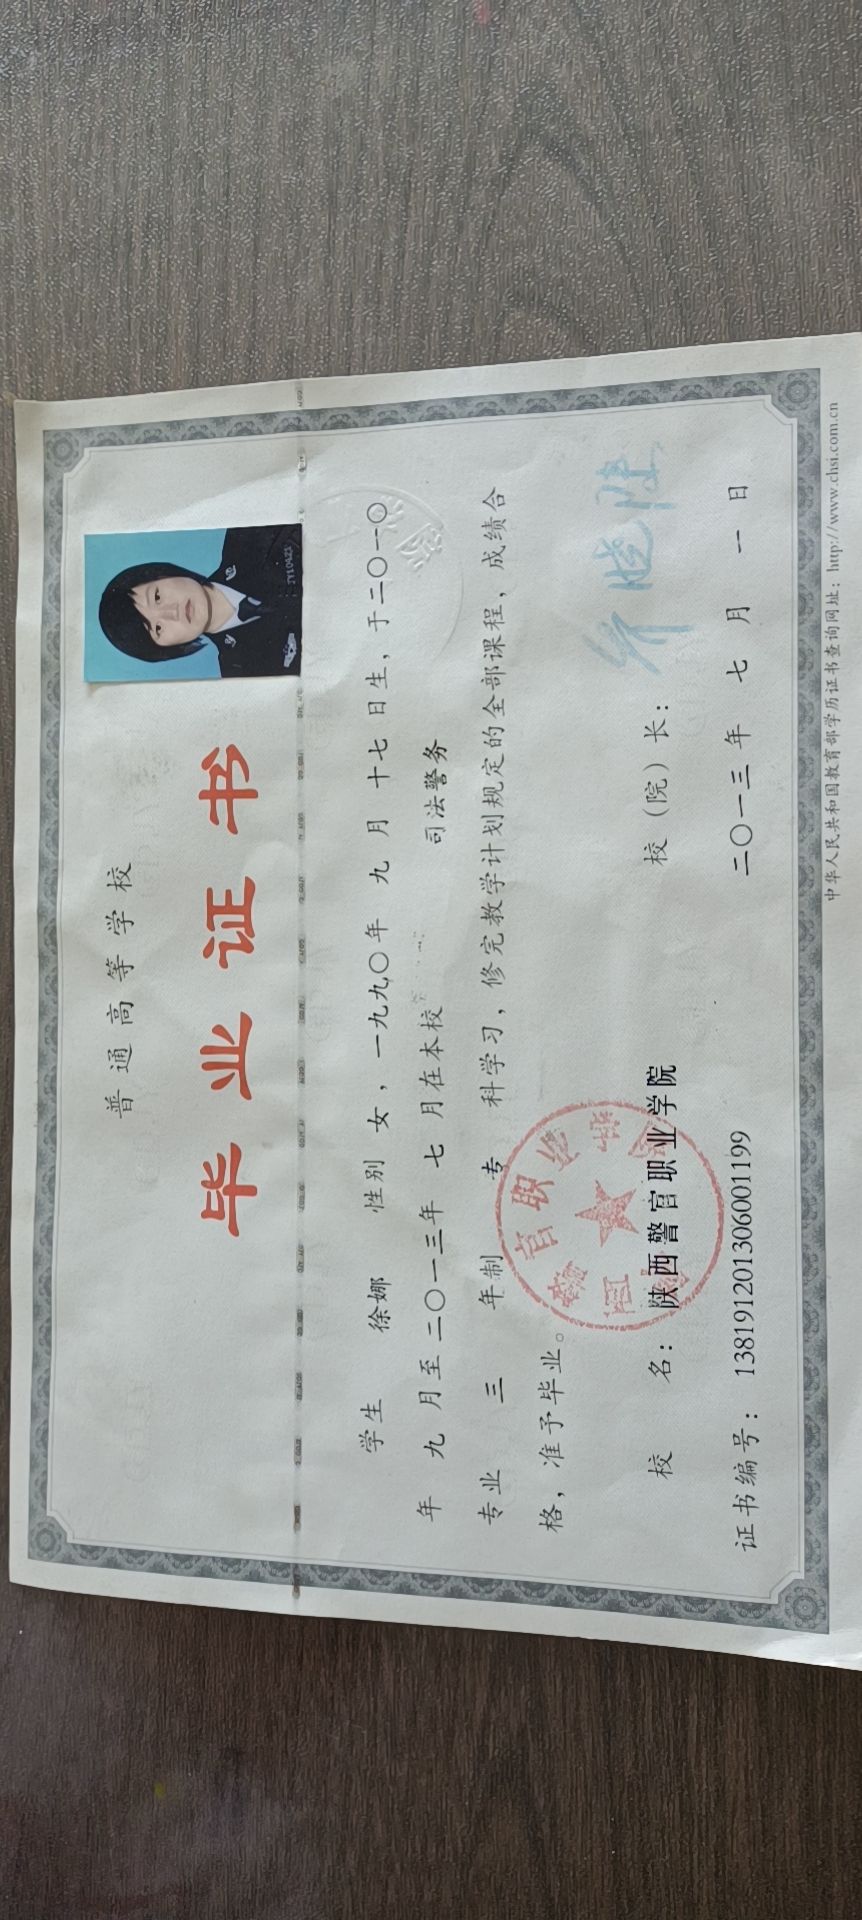 普通高等学校
毕业证书
JY10423
学生 徐娜 性别 女，一九九〇年 九 月 十七 日生，于二〇一〇
年 九 月至二〇一三年 七 月在本校 司法警务
专业 三 年制 专 科学习，修完教学计划规定的全部课程，成绩合
格，准予毕业。
校 名：陕西警官职业学院 校（院）长：
证书编号：138191201306001199 二〇一三年 七 月 一 日
中华人民共和国教育部学历证书查询网址：http://www.chsi.com.cn